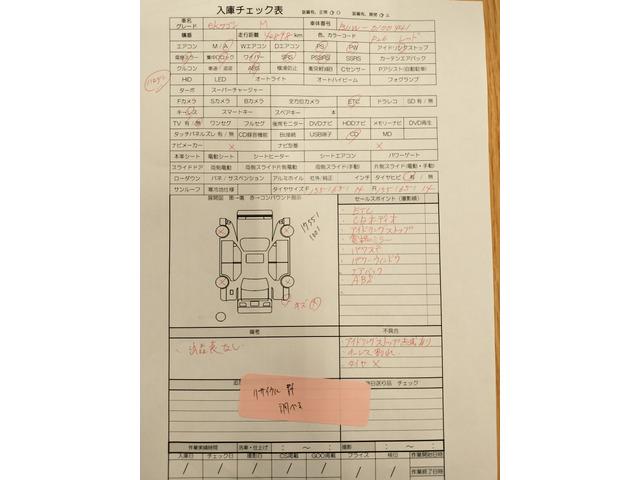 入庫チェック表
車名
グレード
ekワゴン M
車体番号
B11W-0100441
機番
走行距離 42898 km
色、カラーコード
P26 レッド
エアコン M/A Wエアコン Dエアコン PS PW アイドリングストップ
電格ミラー 集中ロック ワイパー SRS PSSRS SSRS カーテンエアバック
クルコン 車速/追従 ABS 横滑防止 衝突軽減B Cセンサー Pアシスト(自動駐車)
HID LED オートライト オートハイビーム フォグランプ
ターボ スーパーチャージャー
Fカメラ Sカメラ Bカメラ 全方位カメラ ETC ドラレコ SD有/無
キーレス スマートキー スペアキー 本
TV有/無 ワンセグ フルセグ 後席モニター DVDナビ HDDナビ メモリーナビ DVD再生
タッチパネルズレ有/無 CD録音機能 Bt接続 USB端子 CD MD
ナビメーカー × ナビ型番 ×
本革シート 電動シート シートヒーター シートエアコン パワーゲート
スライドドア 両側電動 両側スライド片側電動 両側スライド(手動) 片側スライド(電動・手動)
ローダウン バネ/サスペンション アルミホイル 社外/純正 インチ タイヤヒビ 有/無
サンルーフ 寒冷地仕様 タイヤサイズ F 155/65/14 R 155/65/14
セールスポイント(撮影順)
・ETC
・CDオーディオ
・アイドリングストップ
・電格ミラー
・パワステ
・パワーウィンドウ
・エアバック
・ABS
キズ 大
備考
不具合
・アイドリングストップ点滅あり
・タイヤ ×
リサイクル 券
調べる
作業実績時間 洗車・仕上げ : ～ : 撮影 : ～ :
入庫日 チェック日 撮影日 CS掲載 GOO掲載 プライス 検位 作業開始日時
作業終了日時